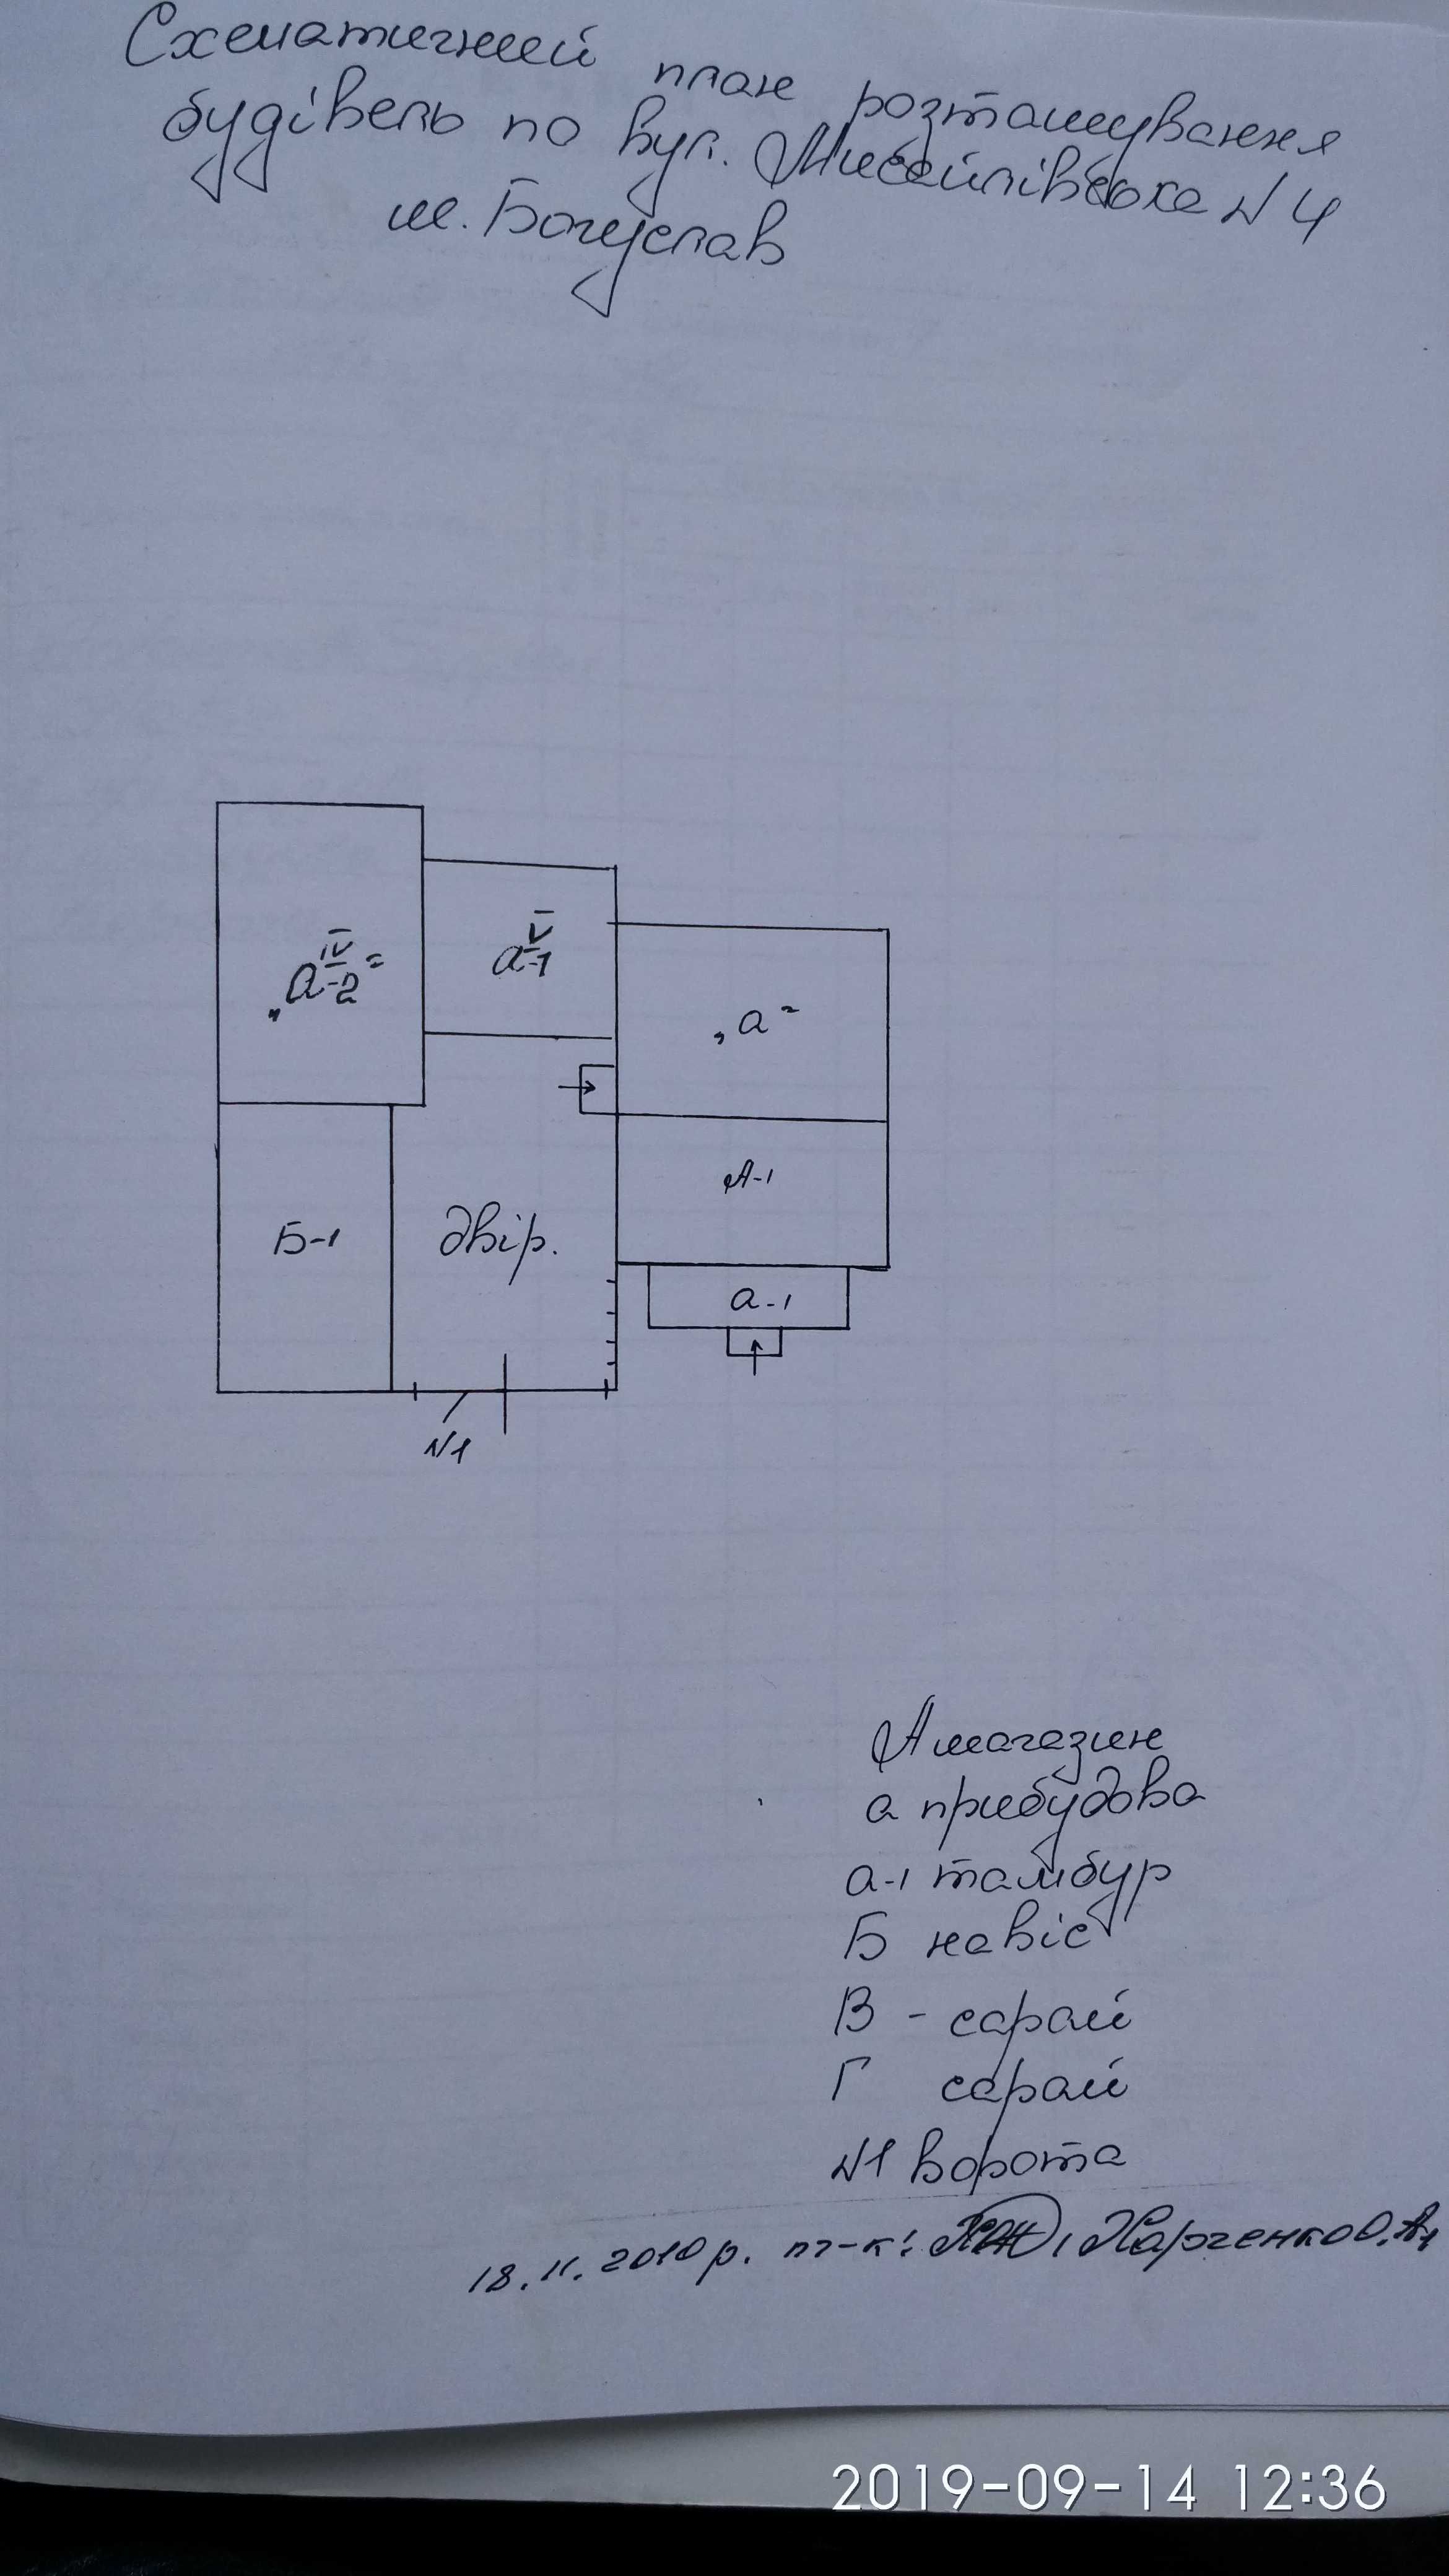 Схематичний план розташування
будівель по вул. Миколаївська N 4
м. Богуслав
„а IV-2"
а V-1
„а"
А-1
Б-1
двір.
а-1
N1
А магазин
а прибудова
а-1 тамбур
Б навіс
В - сарай
Г сарай
N1 ворота
18.11.2010р. т-к: Харченко О.А.
2019-09-14 12:36